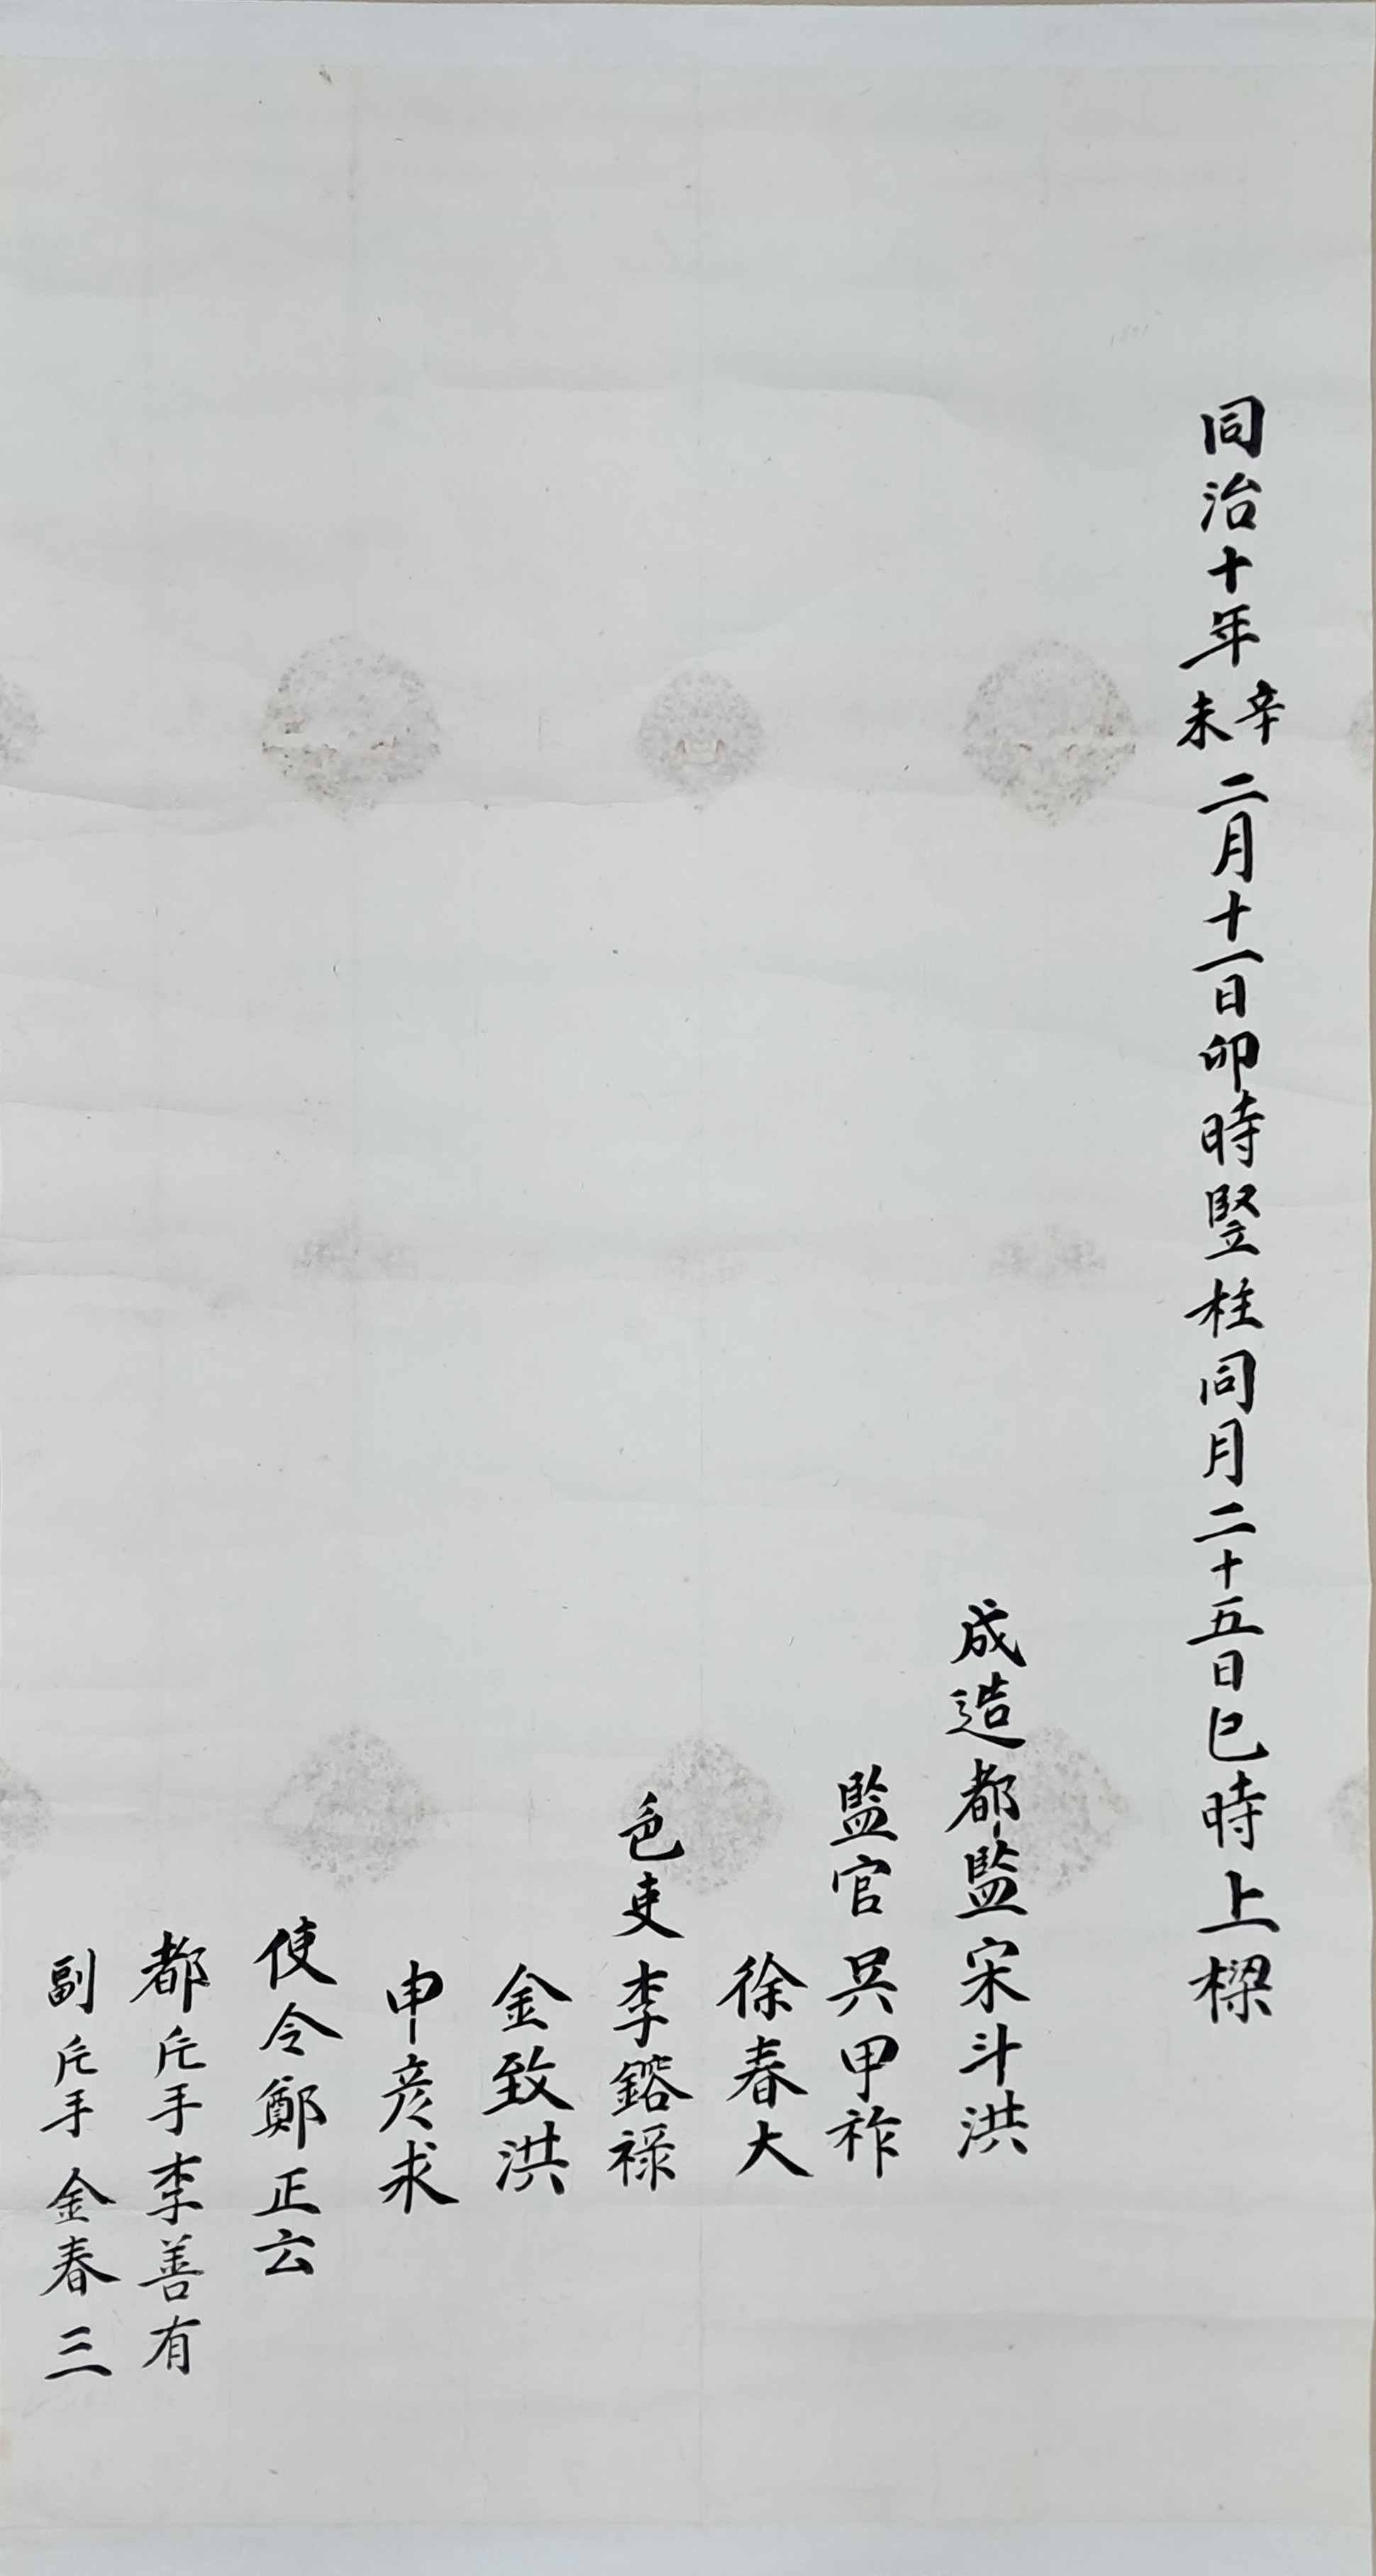 同治十年辛未二月十一日卯時竪柱同月二十五日巳時上樑
成造都監宋斗洪
監官吳甲祚
徐春大
色吏李鎔祿
金致洪
申彦求
使令鄭正云
都斤手李善有
副斤手金春三